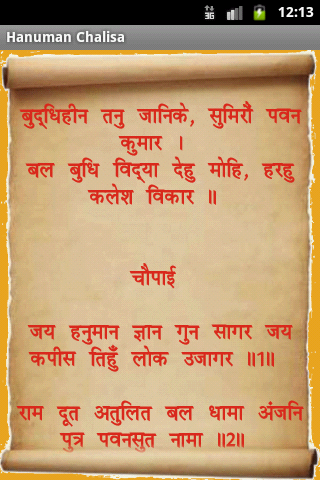 3G 12:13
Hanuman Chalisa
बुद्धिहीन तनु जानिके, सुमिरौं पवन
कुमार ।
बल बुधि विद्या देहु मोहि, हरहु
कलेश विकार ॥
चौपाई
जय हनुमान ज्ञान गुन सागर जय
कपीस तिहुँ लोक उजागर ॥1॥
राम दूत अतुलित बल धामा अंजनि
पुत्र पवनसुत नामा ॥2॥